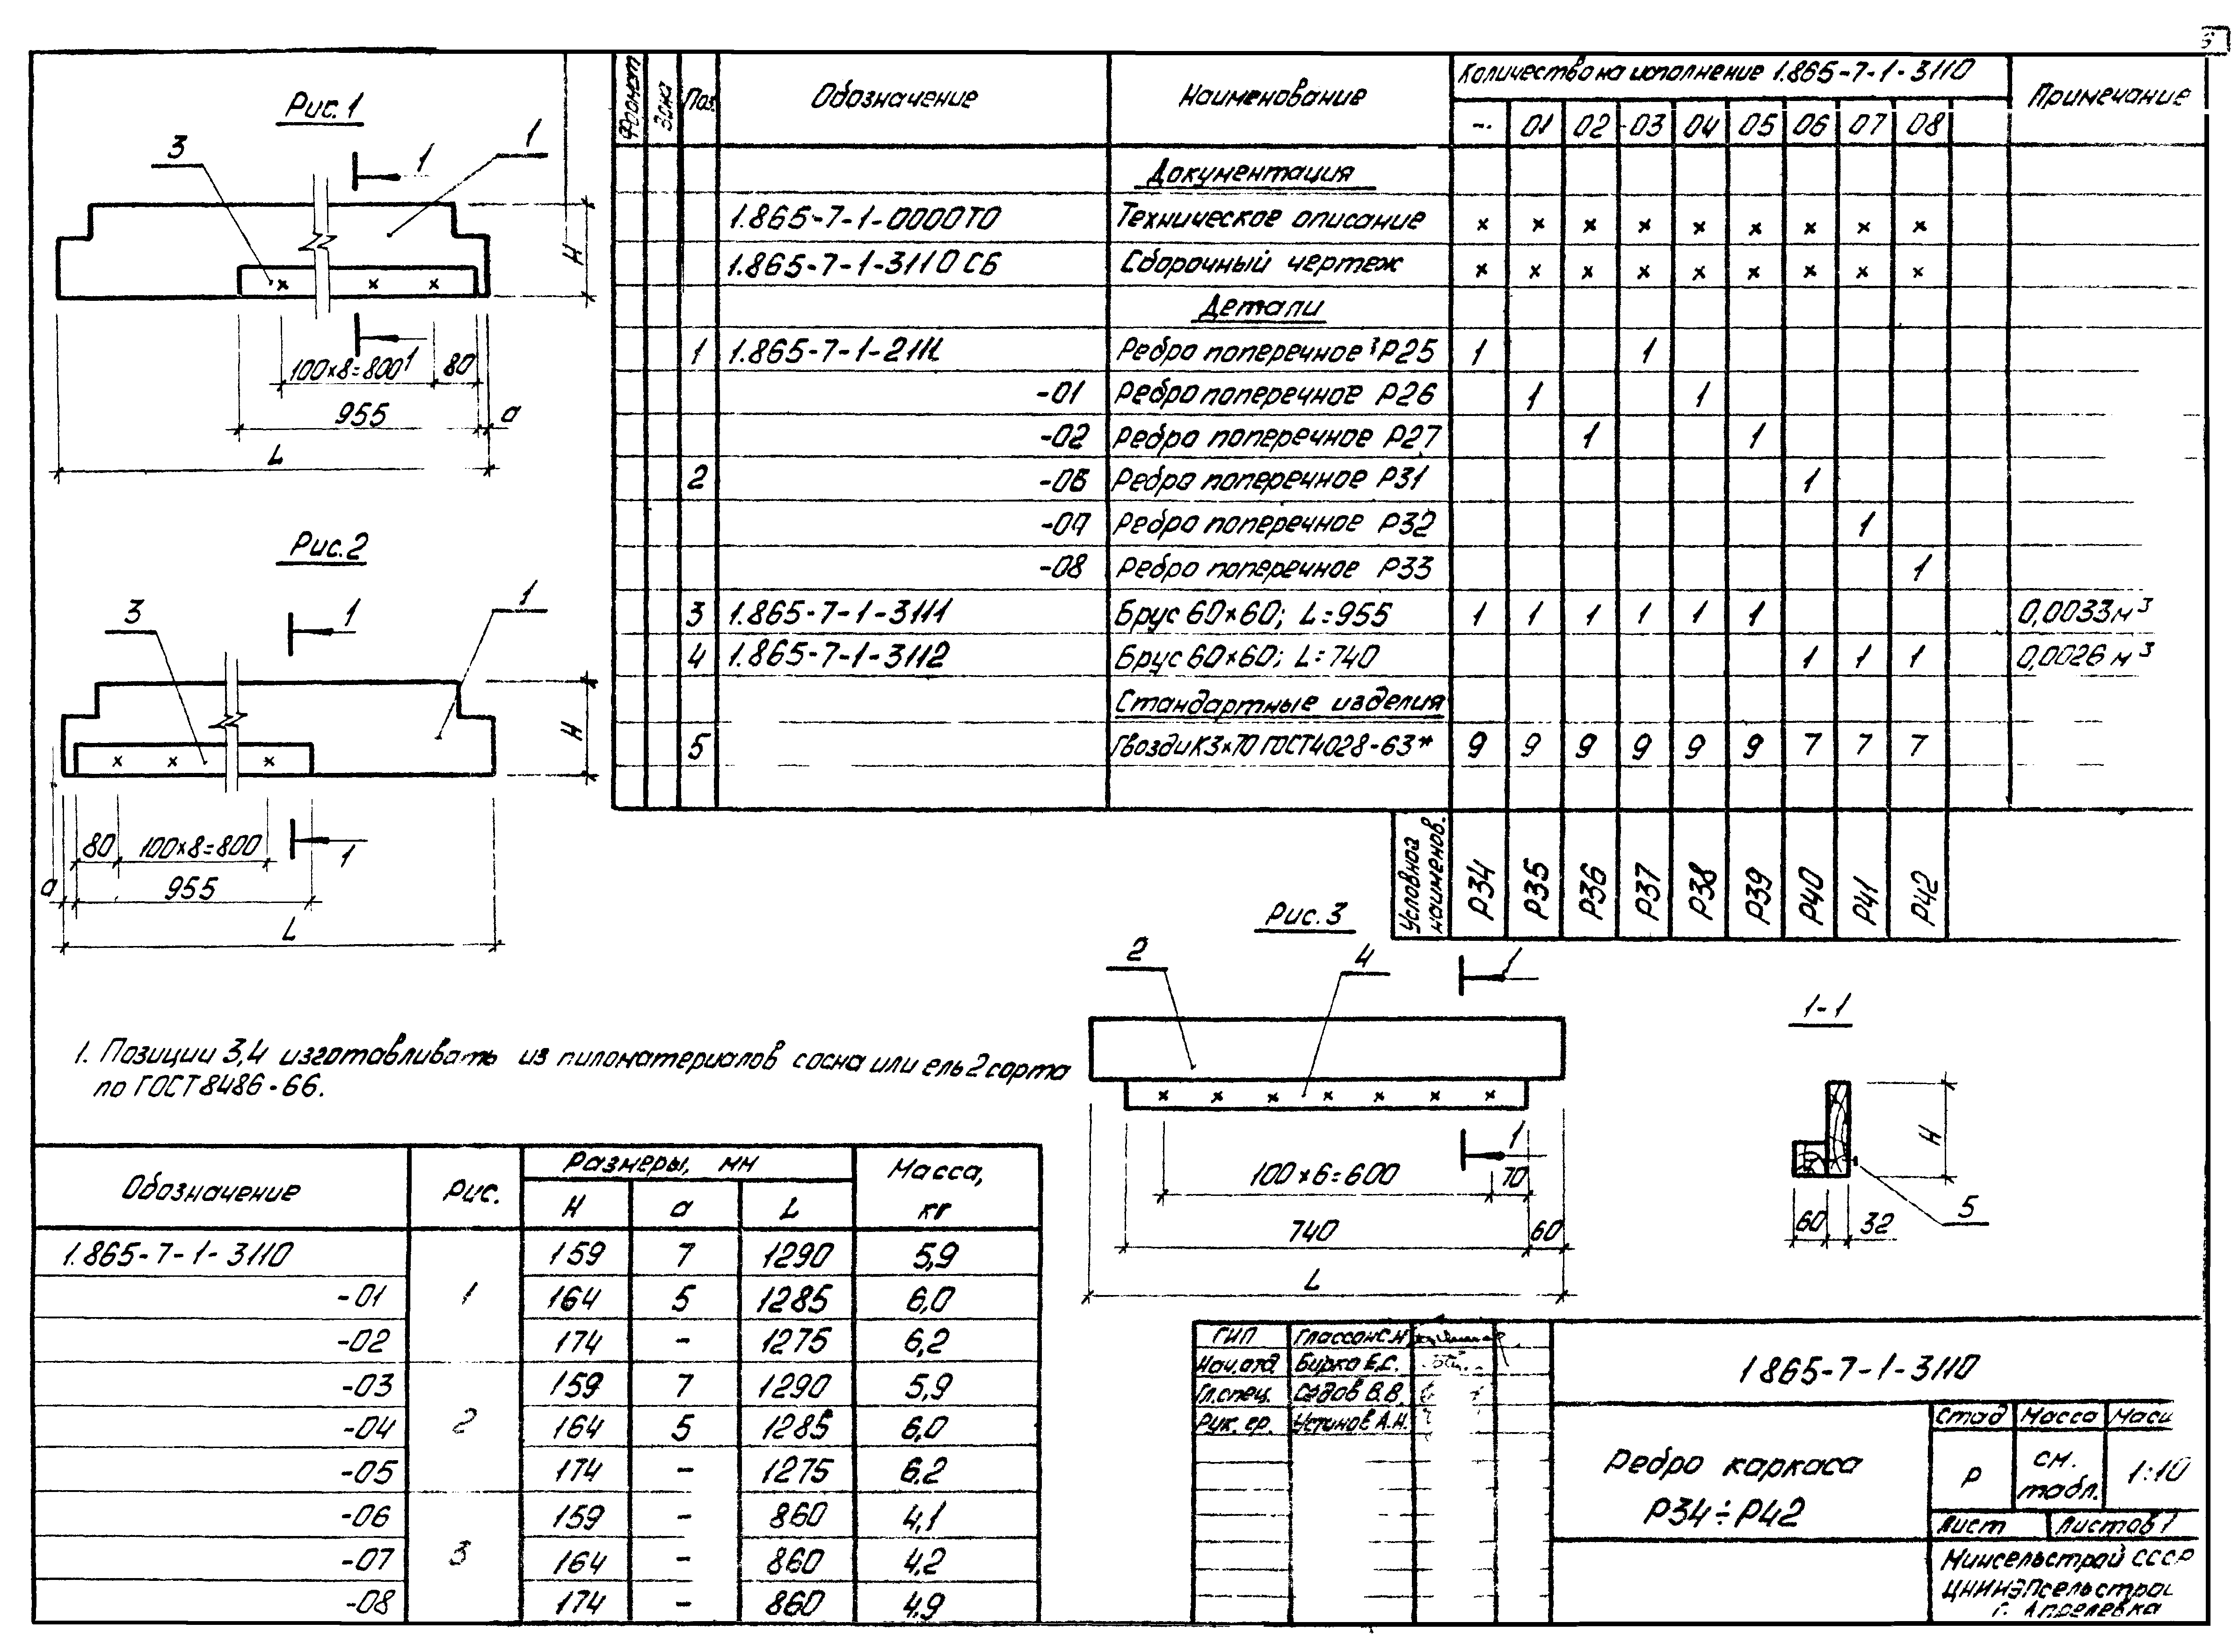 Рис.1
3
1
1
H
100×8=800
1
80
955
a
L
Рис.2
3
1
1
H
80
100×8=800
1
a
955
L
Формат Зона Поз. Обозначение Наименование Количество на исполнение 1.865-7-1-3110 Примечание
- 01 02 03 04 05 06 07 08
Документация
1.865-7-1-0000ТО Техническое описание × × × × × × × × ×
1.865-7-1-3110 СБ Сборочный чертеж × × × × × × × × ×
Детали
1 1.865-7-1-2111 Ребро поперечное Р25 1 1
-01 Ребро поперечное Р26 1 1
-02 Ребро поперечное Р27 1 1
2 -06 Ребро поперечное Р31 1
-07 Ребро поперечное Р32 1
-08 Ребро поперечное Р33 1
3 1.865-7-1-3111 Брус 60×60; L=955 1 1 1 1 1 1 0,0033 м³
4 1.865-7-1-3112 Брус 60×60; L=740 1 1 1 0,0026 м³
Стандартные изделия
5 Гвозди К3×70 ГОСТ4028-63* 9 9 9 9 9 9 7 7 7
Условное наименов. Р34 Р35 Р36 Р37 Р38 Р39 Р40 Р41 Р42
Рис.3
2
4
1
1
100×6=600
70
740
60
L
1-1
H
60
32
5
1. Позиции 3,4 изготавливать из пиломатериалов сосна или ель 2 сорта
по ГОСТ 8486-66.
Обозначение Рис. Размеры, мм Масса, кг
H a L
1.865-7-1-3110 1 159 7 1290 5,9
-01 164 5 1285 6,0
-02 174 - 1275 6,2
-03 2 159 7 1290 5,9
-04 164 5 1285 6,0
-05 174 - 1275 6.2
-06 3 159 - 860 4,1
-07 164 - 860 4,2
-08 174 - 860 4,9
ГИП Глассон С.И.
Нач.отд. Бирко Е.С.
Гл.спец. Седов В.В.
Рук. гр. Устинов А.Н.
1 865-7-1-3110
Ребро каркаса
Р34÷Р42
Стад Масса Масш
Р см. табл. 1:10
Лист Листов 1
Минсельстрой СССР
ЦНИИЭПсельстрой
г. Апрелевка